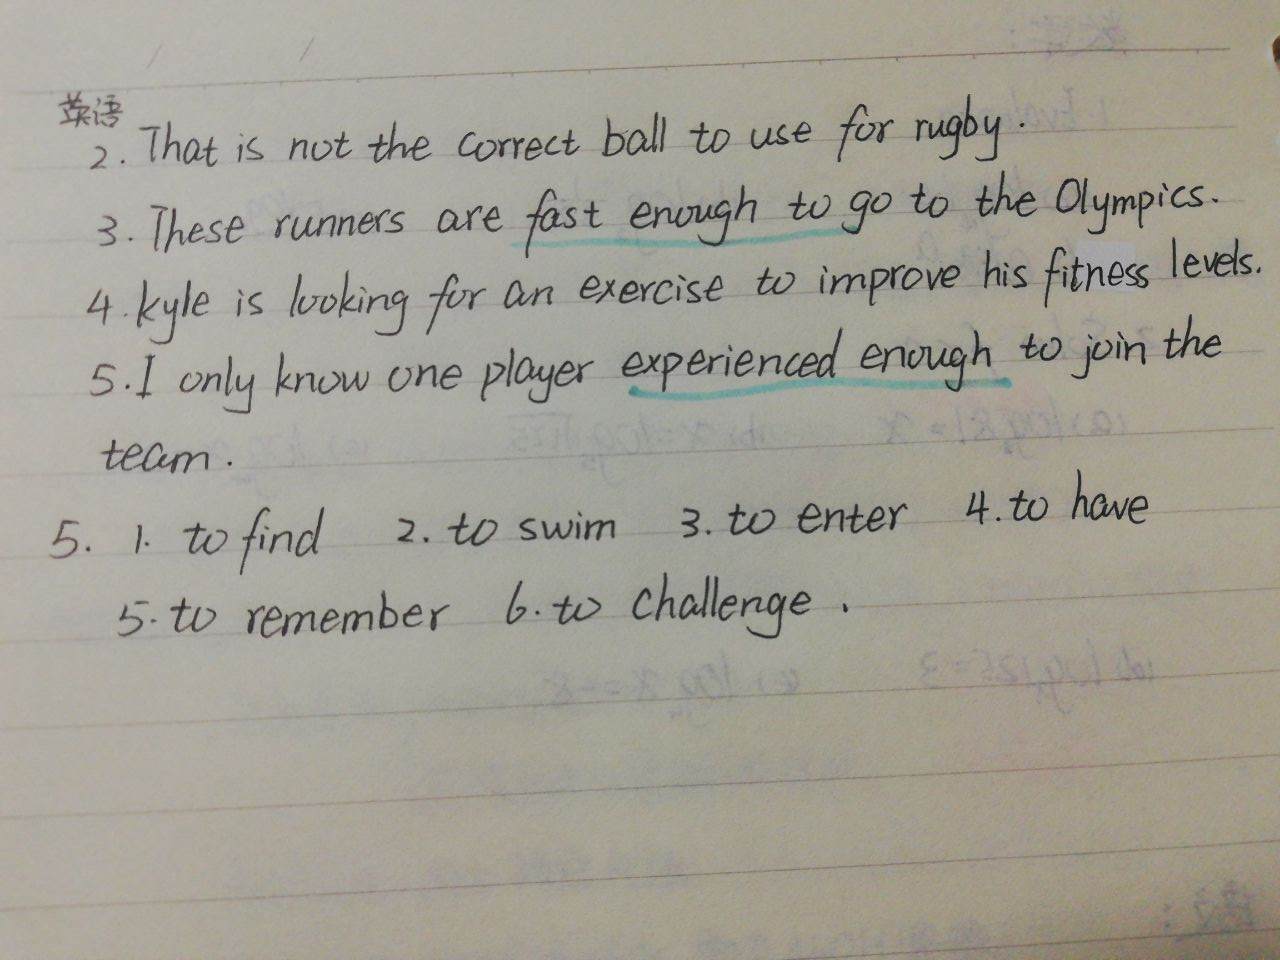 英语
2. That is not the correct ball to use for rugby.
3. These runners are fast enough to go to the Olympics.
4. kyle is looking for an exercise to improve his fitness levels.
5. I only know one player experienced enough to join the
team.
5. 1. to find 2. to swim 3. to enter 4. to have
5. to remember 6. to challenge.